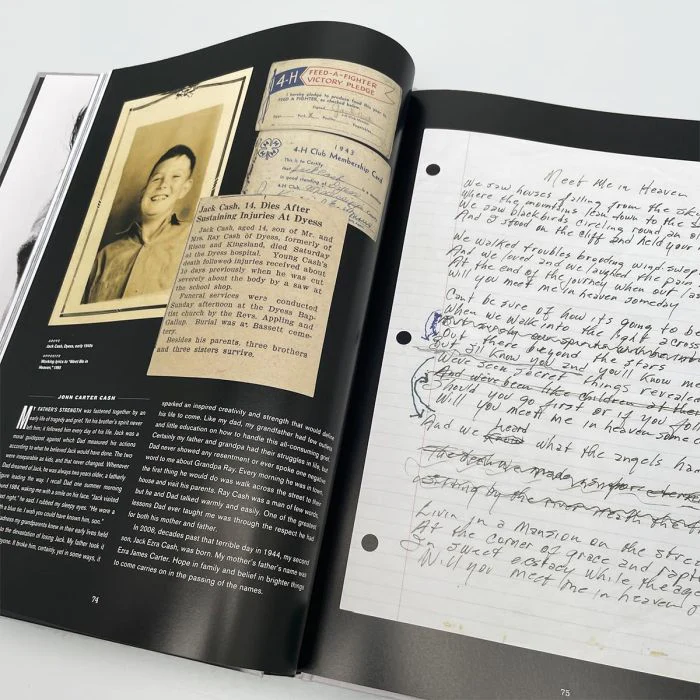 4-H FEED-A-FIGHTER
VICTORY PLEDGE
I hereby pledge to produce food this year to
FEED A FIGHTER, as checked below.
1943
4-H Club Membership Card
This is to Certify
that Jack Cash
in good standing of Dyess
4-H Club
Jack Cash, 14, Dies After
Sustaining Injuries At Dyess
Jack Cash, aged 14, son of Mr. and
Mrs. Ray Cash of Dyess, formerly of
Rison and Kingsland, died Saturday
at the Dyess hospital. Young Cash's
death followed injuries received about
10 days previously when he was cut
severely about the body by a saw at
the school shop.
Funeral services were conducted
Sunday afternoon at the Dyess Bap-
tist church by the Revs. Appling and
Gallup. Burial was at Bassett ceme-
tery.
Besides his parents, three brothers
and three sisters survive.
ABOVE
Jack Cash, Dyess, early 1940s
OPPOSITE
Working lyrics to "Meet Me in
Heaven,"
JOHN CARTER CASH
MY FATHER'S STRENGTH was fastened together by an
early life of tragedy and grief. Yet his brother's spirit never
left him; it followed him every day of his life. Jack was a
moral guidepost against which Dad measured his actions
according to what he believed Jack would have done. The two
were inseparable as kids, and that never changed. Whenever
Dad dreamed of Jack, he was always two years older, a fatherly
figure leading the way. I recall Dad one summer morning
around 1984, waking me with a smile on his face. "Jack visited
last night," he said. I rubbed my sleepy eyes. "He wore a
tie. I wish you could have known him, son."
sadness my grandparents knew in their early lives held
the devastation of losing Jack. My father took it
anyone. It broke him, certainly, yet in some ways, it
sparked an inspired creativity and strength that would define
his life to come. Like my dad, my grandfather had few outlets
and little education on how to handle this all-consuming grief.
Certainly my father and grandpa had their struggles in life, but
Dad never showed any resentment or ever spoke one negative
word to me about Grandpa Ray. Every morning he was in town,
the first thing he would do was walk across the street to their
house and visit his parents. Ray Cash was a man of few words,
but he and Dad talked warmly and easily. One of the greatest
lessons Dad ever taught me was through the respect he had
for both his mother and father.
In 2008, decades past that terrible day in 1944, my second
son, Jack Ezra Cash, was born. My mother's father's name was
Ezra James Carter. Hope in family and belief in brighter things
to come carries on in the passing of the names.
74
Meet Me in Heaven
We saw houses falling from the
Where the mountains lean down to the
We saw blackbirds circling round an
And I stood on the cliff and held your
We walked troubles brooding wind swept
And we loved and we laughed the pain
At the end of the journey when our
Will you meet me in heaven someday
Cant be sure of how it's going to
When we walk into the light across
Out there beyond the stars
You'll know me and you'll know
We've seen secret things revealed
And were the children at the
Should you go first or if you follow
Will you meet me in heaven some
And we heard what the angels have
Sitting by the river neath the
Livin in a mansion on the
At the corner of grace and
In sweet ecstasy while the
Will you meet me in heaven
75